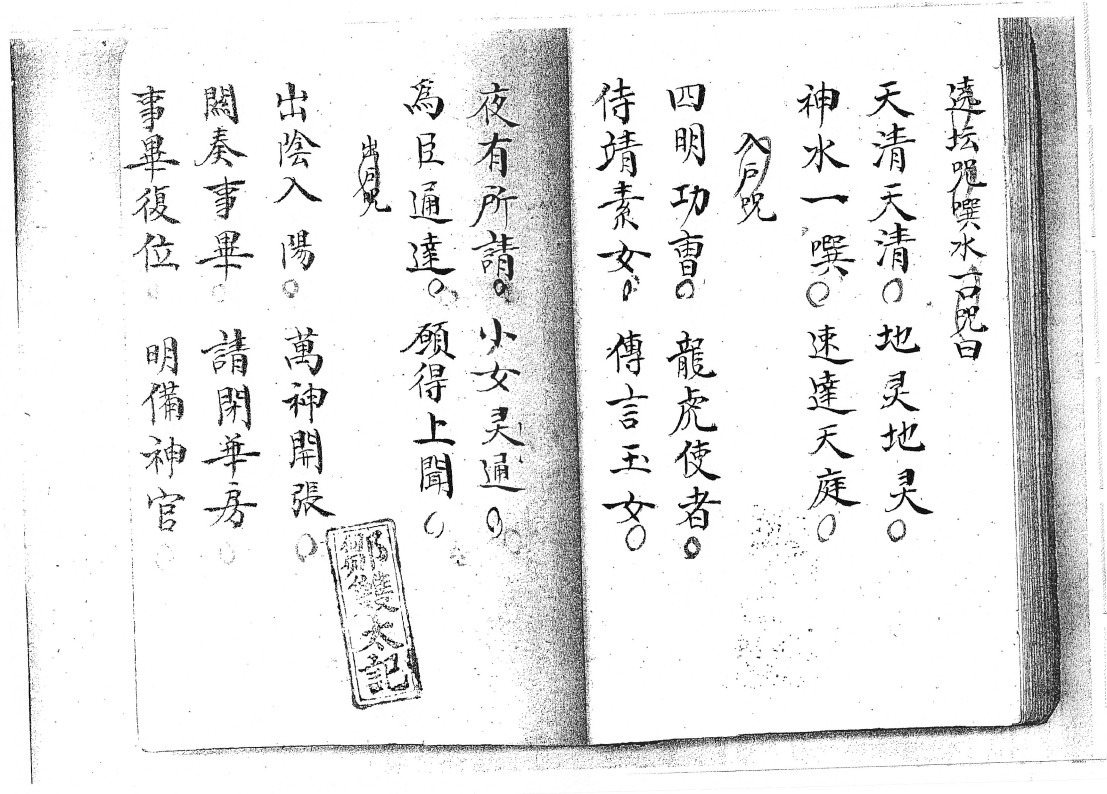 遶坛咒噀水一口咒曰
天清天清。地灵地灵。
神水一噀。速達天庭。
入戶咒
四明功曹。龍虎使者。
侍靖素女。傳言玉女。
夜有所請。小女灵通。
為臣通達。願得上聞。
出戶咒
出陰入陽。萬神開張。
闗奏事畢。請閉華房。
事畢復位。明備神官。
雙太記